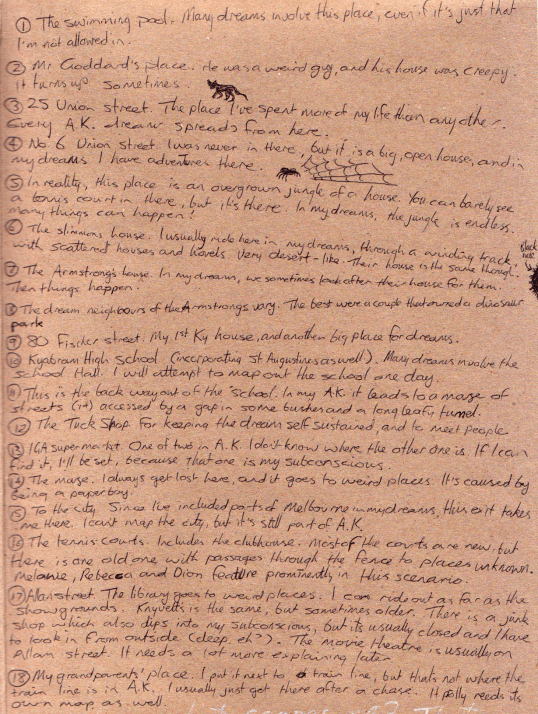 ① The swimming pool. Many dreams involve this place, even if it's just that
I'm not allowed in.
② Mr Goddard's place. He was a weird guy, and his house was creepy.
It turns up sometimes.
③ 25 Union street. The place I've spent more of my life than any other.
Every A.K. dream spreads from here.
④ No. 6 Union street. I was never in there, but it is a big, open house, and in
my dreams I have adventures there.
⑤ In reality, this place is an overgrown jungle of a house. You can barely see
a tennis court in there, but it's there. In my dreams, the jungle is endless.
many things can happen!
⑥ The slimmons house. I usually ride here in my dreams, through a winding track,
with scattered houses and hovels. Very desert-like. Their house is the same though.
black
hole
⑦ The Armstrongs house. In my dreams, we sometimes look after their house for them.
Then things happen.
⑧ The dream neighbours of the Armstrongs vary. The best were a couple that owned a dinosaur
park
⑨ 80 Fischer street. My 1st Ky house, and another big place for dreams.
⑩ Kyabram High school (incorporating St Augustines as well). Many dreams involve the
school Hall. I will attempt to map out the school one day.
⑪ This is the back way out of the school. In my A.K. it leads to a maze of
streets (14) accessed by a gap in some bushes and a long leafy tunnel.
⑫ The Tuck Shop. For keeping the dream self sustained, and to meet people
⑬ IGA supermarket. One of two in A.K. I don't know where the other one is. If I can
find it, I'll be set, because that one is my subconscious.
⑭ The maze. I always get lost here, and it goes to weird places. It's caused by
being a paperboy.
⑮ To the city. Since I've included parts of Melbourne in my dreams, this exit takes
me there. I can't map the city, but it's still part of A.K.
⑯ The tennis courts. Includes the clubhouse. Most of the courts are new, but
there is are old one with passages through the fence to places unknown.
Melanie, Rebecca and Dion feature prominently in this scenario.
⑰ Allan street. The library goes to weird places. I can ride out as far as the
showgrounds. Knyvetts is the same, but sometimes older. There is a junk
shop which also dips into my subconscious, but its usually closed and I have
to look in from outside (deep, eh?). The movie theatre is usually on
Allan street. It needs a lot more explaining later.
⑱ My grandparents' place. I put it next to a train line, but thats not where the
train line is in A.K. I usually just get there after a chase. It really needs its
own map as well.